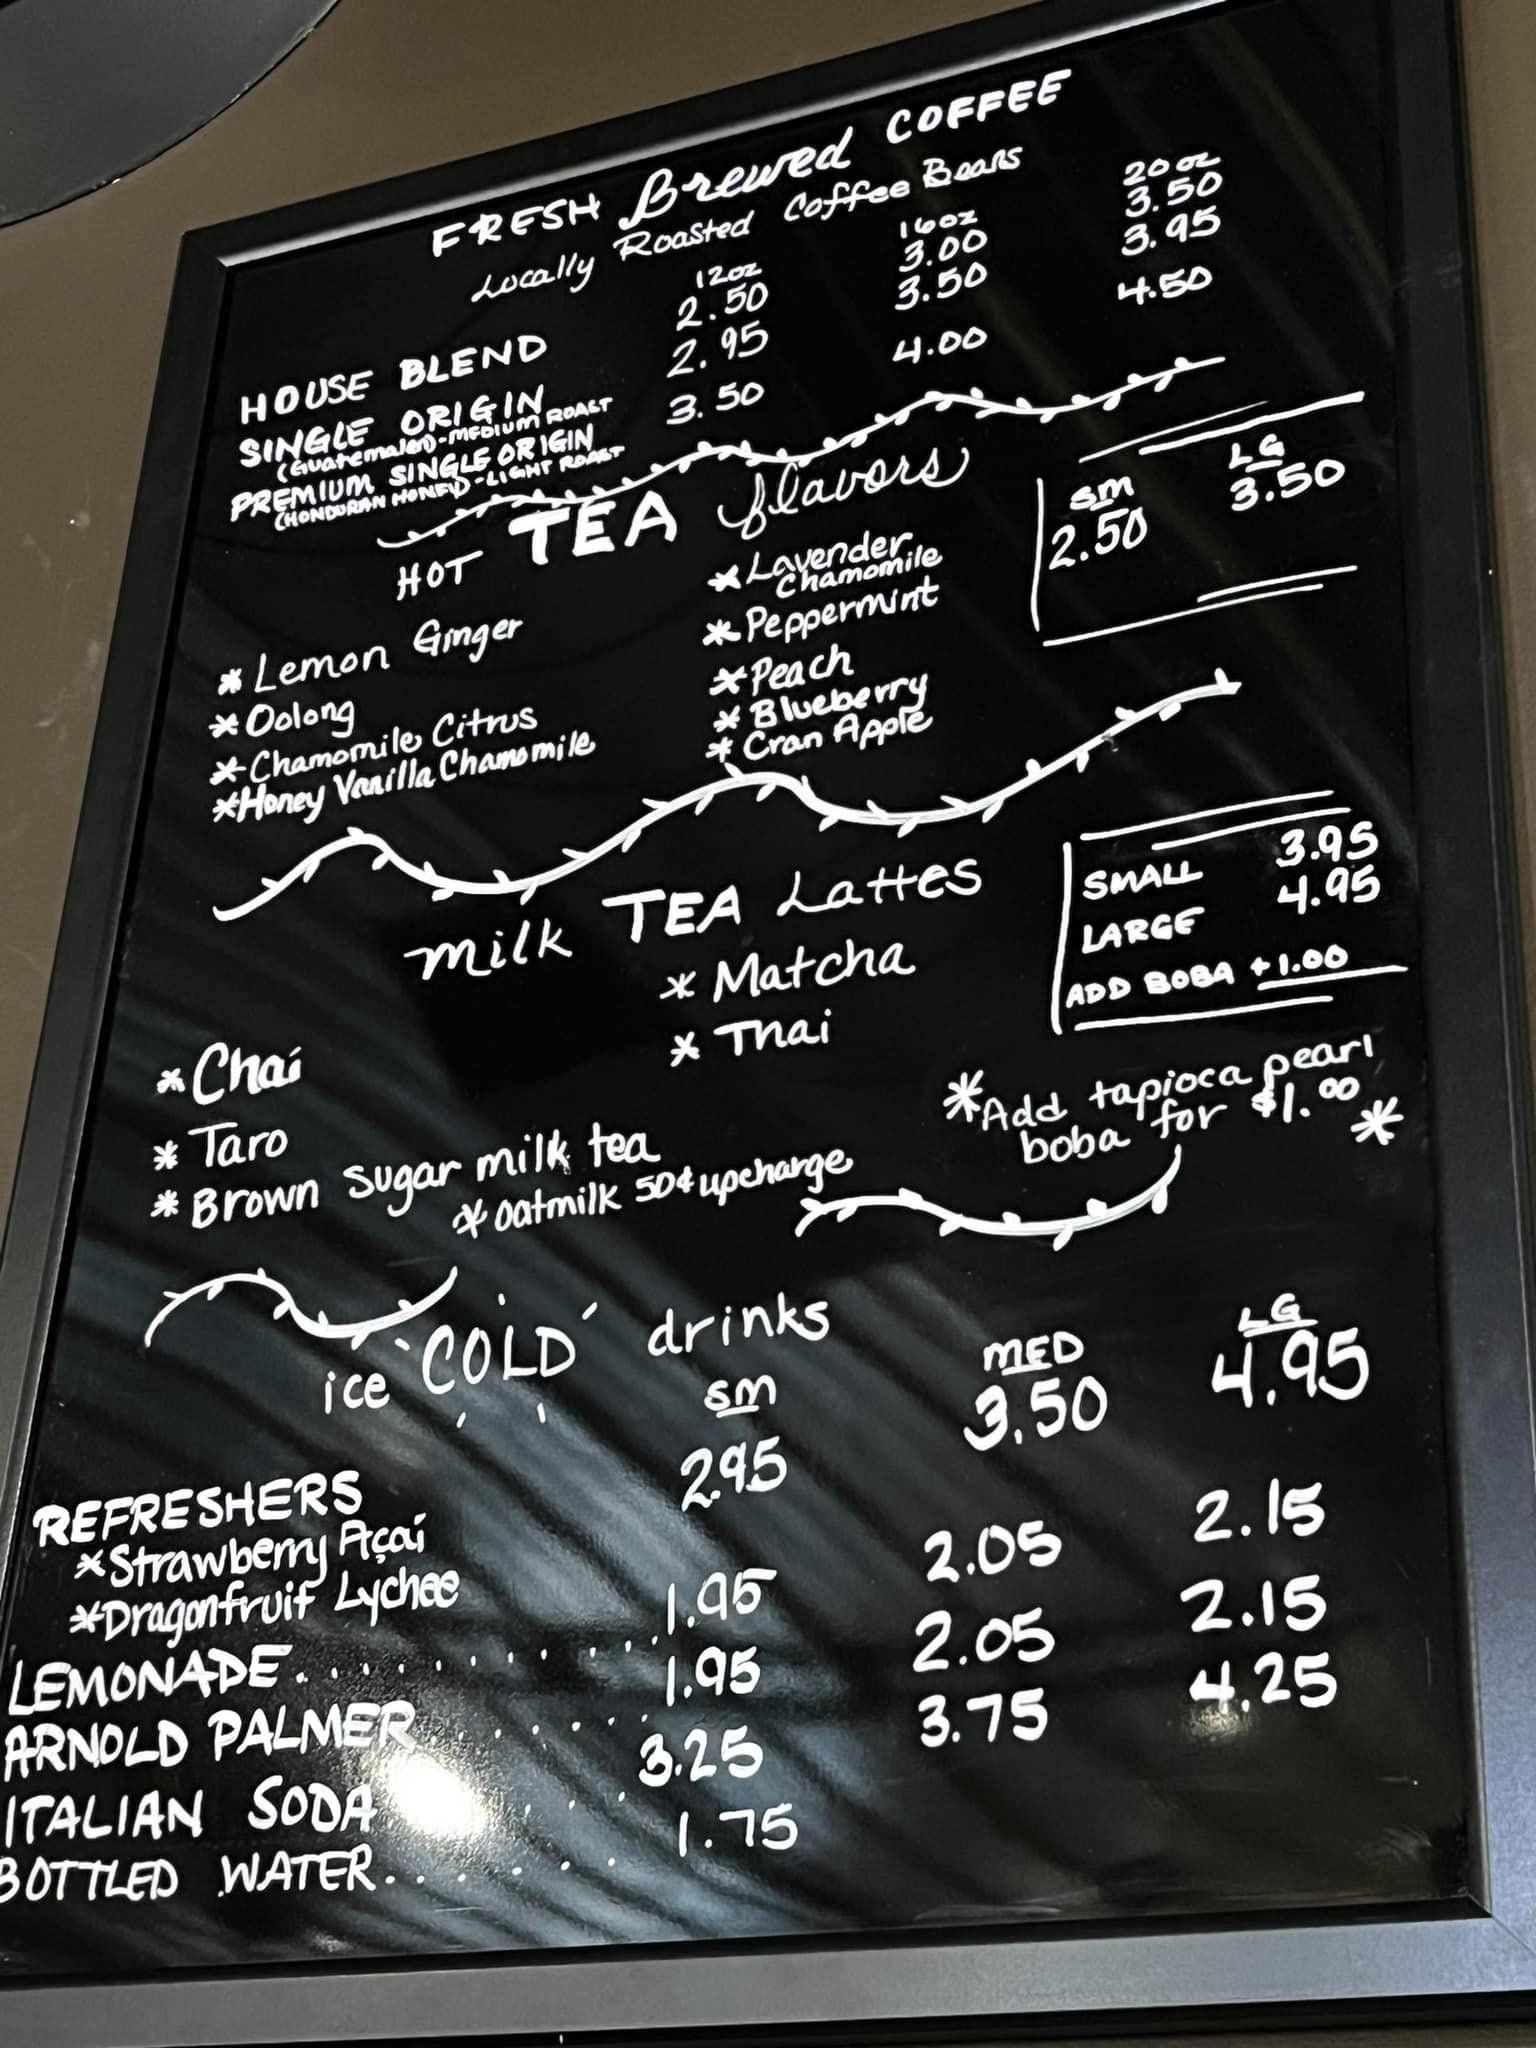 FRESH Brewed COFFEE
Locally Roasted Coffee Beans
12oz 16oz 20oz
HOUSE BLEND 2.50 3.00 3.50
SINGLE ORIGIN 2.95 3.50 3.95
(Guatemalan)-MEDIUM ROAST
PREMIUM SINGLE ORIGIN 3.50 4.00 4.50
(HONDURAN HONEY)-LIGHT ROAST
HOT TEA flavors
SM LG
2.50 3.50
* Lemon Ginger
* Oolong
* Chamomile Citrus
* Honey Vanilla Chamomile
* Lavender
Chamomile
* Peppermint
* Peach
* Blueberry
* Cran Apple
milk TEA Lattes
SMALL 3.95
LARGE 4.95
ADD BOBA +1.00
* Chai
* Taro
* Brown sugar milk tea
* Matcha
* Thai
* oatmilk 50¢ upcharge
* Add tapioca pearl
boba for $1.00 *
ice COLD drinks
SM MED LG
REFRESHERS 2.95 3.50 4.95
* Strawberry Açaí
* Dragonfruit Lychee
LEMONADE.......... 1.95 2.05 2.15
ARNOLD PALMER...... 1.95 2.05 2.15
ITALIAN SODA..... 3.25 3.75 4.25
BOTTLED WATER....... 1.75